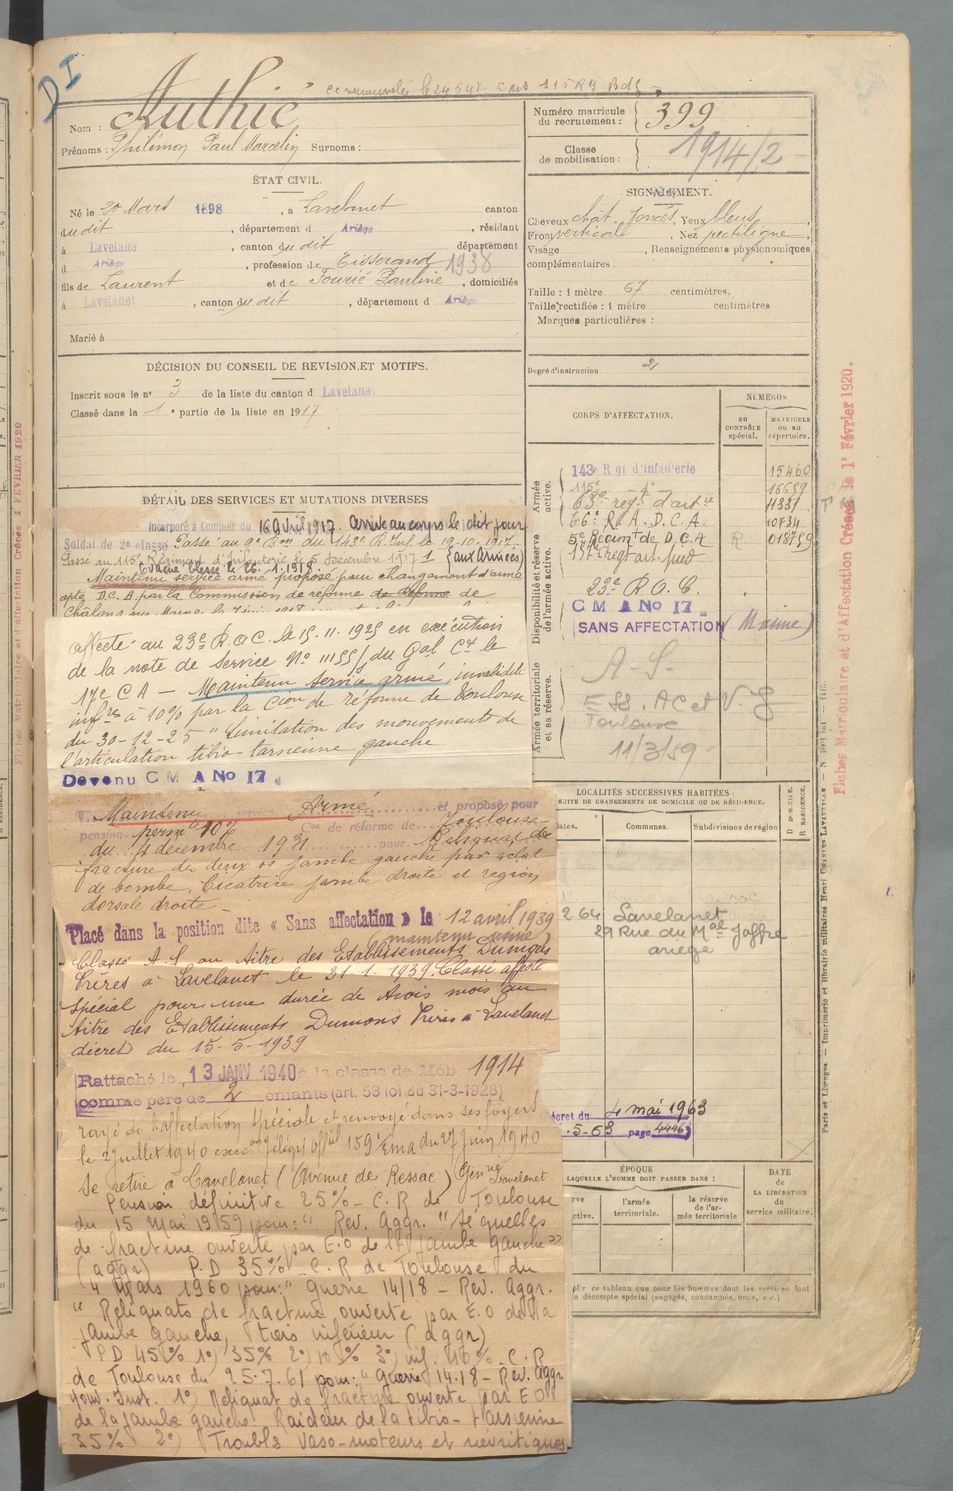 D I
Nom : Authié
Prénoms : Philémon Paul Marcelin Surnoms :
Numéro matricule
du recrutement : 399
Classe
de mobilisation : 1914/2
ÉTAT CIVIL.
Né le 20 Mars 1898, à Lavelanet canton
sudit, département d Ariège, résidant
à Lavelanet, canton sudit département
d Ariège, profession de Tisserand 1938
fils de Laurent et de Fourié Pauline, domiciliés
à Lavelanet, canton du dit, département d Ariège
Marié à
SIGNALEMENT.
Cheveux chât. foncés, Yeux bleus,
Front verticale, Nez rectiligne,
Visage , Renseignements physionomiques
complémentaires :
Taille : 1 mètre 67 centimètres.
Taille rectifiée : 1 mètre centimètres
Marques particulières :
Degré d'instruction 2
DÉCISION DU CONSEIL DE REVISION ET MOTIFS.
Inscrit sous le n° 3 de la liste du canton d Lavelanet
Classé dans la 1e partie de la liste en 1917
DÉTAIL DES SERVICES ET MUTATIONS DIVERSES
Incorporé à compter du 16 avril 1917. Arrivé au corps le dit jour
Soldat de 2e classe Passé au 9e Bon du 143e R. Inf. le 19-10-1917
Passé au 115e Régiment d'Infanterie le 5 Décembre 1917 (aux Armées)
Evacué blessé le 26.1.1918.
Maintenu service armé proposé pour changement d'arme
apte D.C.A. par la Commission de réforme de
Châlons sur Marne
affecté au 23e R.O.C. le 15.11.1925 en exécution
de la note de service No 11155/ du Gal Ct le
17e C A — Maintenu service armé, invalidité
infre à 10% par la Cion de réforme de Toulouse
du 30-12-25 "Limitation des mouvements de
l'articulation tibio-tarsienne gauche
Devenu C M A No 17
Maintenu service Armé et proposé pour
pension perm te 10% Con de réforme de Toulouse
du 4 décembre 1931 pour Reliquat de
fracture des deux os jambe gauche par éclat
de bombe. Cicatrice jambe droite et région
dorsale droite —
Placé dans la position dite « Sans affectation » le 12 avril 1939
Classé A S au titre des Etablissements Dumons
Frères à Lavelanet le 31-1-1939. Classé affecté
Spécial pour une durée de trois mois au
titre des Etablissements Dumons Frères à Lavelanet
décret du 15-5-1939
Rattaché le 13 JANV 1940 à la classe de Mob 1914
comme père de 2 enfants (art. 58 loi du 31-3-1928)
rayé de l'affectation spéciale et renvoyé dans ses foyers
le 2 juillet 1940 159 Ema du 27 juin 1940
Se retire à Lavelanet (Avenue de Ressac) Lavelanet
Pension définitive 25% - C.R de Toulouse
du 15 Mai 1959 pour : " Rev. Aggr. " Séquelles
de fracture ouverte par E.O de la jambe gauche"
(aggr) P.D 35% - C.R de Toulouse du
4 Mars 1960 pour : " Guerre 14/18 - Rev. Aggr.
" Reliquats de fracture ouverte par E.O de la
jambe gauche, tiers inférieur (aggr)
PD 45% 1°) 35% 2°) 10% 3°) inf. 10% - C.R
de Toulouse du 25.7.61 pour : " Guerre 14.18 - Rev. Aggr.
1°) Reliquat de fracture ouverte par E.O
de la jambe gauche. Raideur de la tibio-tarsienne
35% 2°) Troubles vaso-moteurs et névritiques
CORPS D'AFFECTATION.
NUMÉROS
au
contrôle
spécial.
MATRICULE
ou au
répertoire.
Armée
active.
143e Rgt d'Infanterie 15460
115e — d° — 16659
63e régt d'artie 11331
66e R.A.D.C.A. 10734
5e Régimt de D.C.A R
Disponibilité et réserve
de l'armée active.
23e R.O.C.
C M A No 17
SANS AFFECTATION
Armée territoriale
et sa réserve.
A-S-
Toulouse
11/3/59
LOCALITÉS SUCCESSIVES HABITÉES
SUITE DE CHANGEMENTS DE DOMICILE OU DE RÉSIDENCE.
Dates.
Communes.
Subdivisions de région
D DOMICILE.
R RÉSIDENCE.
2 64 Lavelanet
29 Rue du Mal Joffre
ariège
décret du 4 mai 1963
.5-63 page 4446
ÉPOQUE
LAQUELLE L'HOMME DOIT PASSER DANS :
DATE
DE
LA LIBÉRATION
du
service militaire.
l'armée
territoriale.
la réserve
de l'ar-
mée territoriale
plir ce tableau que pour les hommes dont les services font
décompte spécial (engagés, condamnés, omis, etc.)
Fiches Matriculaire et d'Affectation Créées le 1er Février 1920.
Paris et Limoges — Imprimerie et librairie militaires Henri CHARLES-LAVAUZELLE